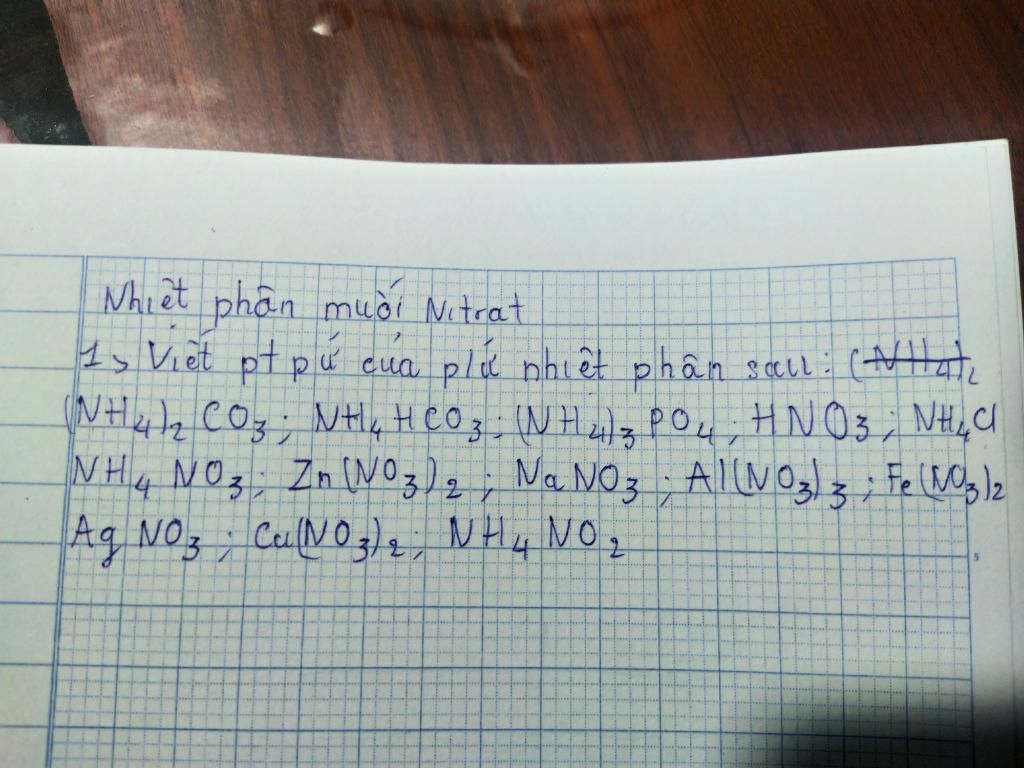 Nhiệt phân muối Nitrat
1, Viết pt pứ của p/ứ nhiệt phân sau: (NH4)2
(NH4)2 CO3; NH4HCO3; (NH4)3 PO4; HNO3; NH4Cl
NH4 NO3; Zn(NO3)2; NaNO3; Al(NO3)3; Fe(NO3)2
Ag NO3; Cu(NO3)2; NH4 NO2